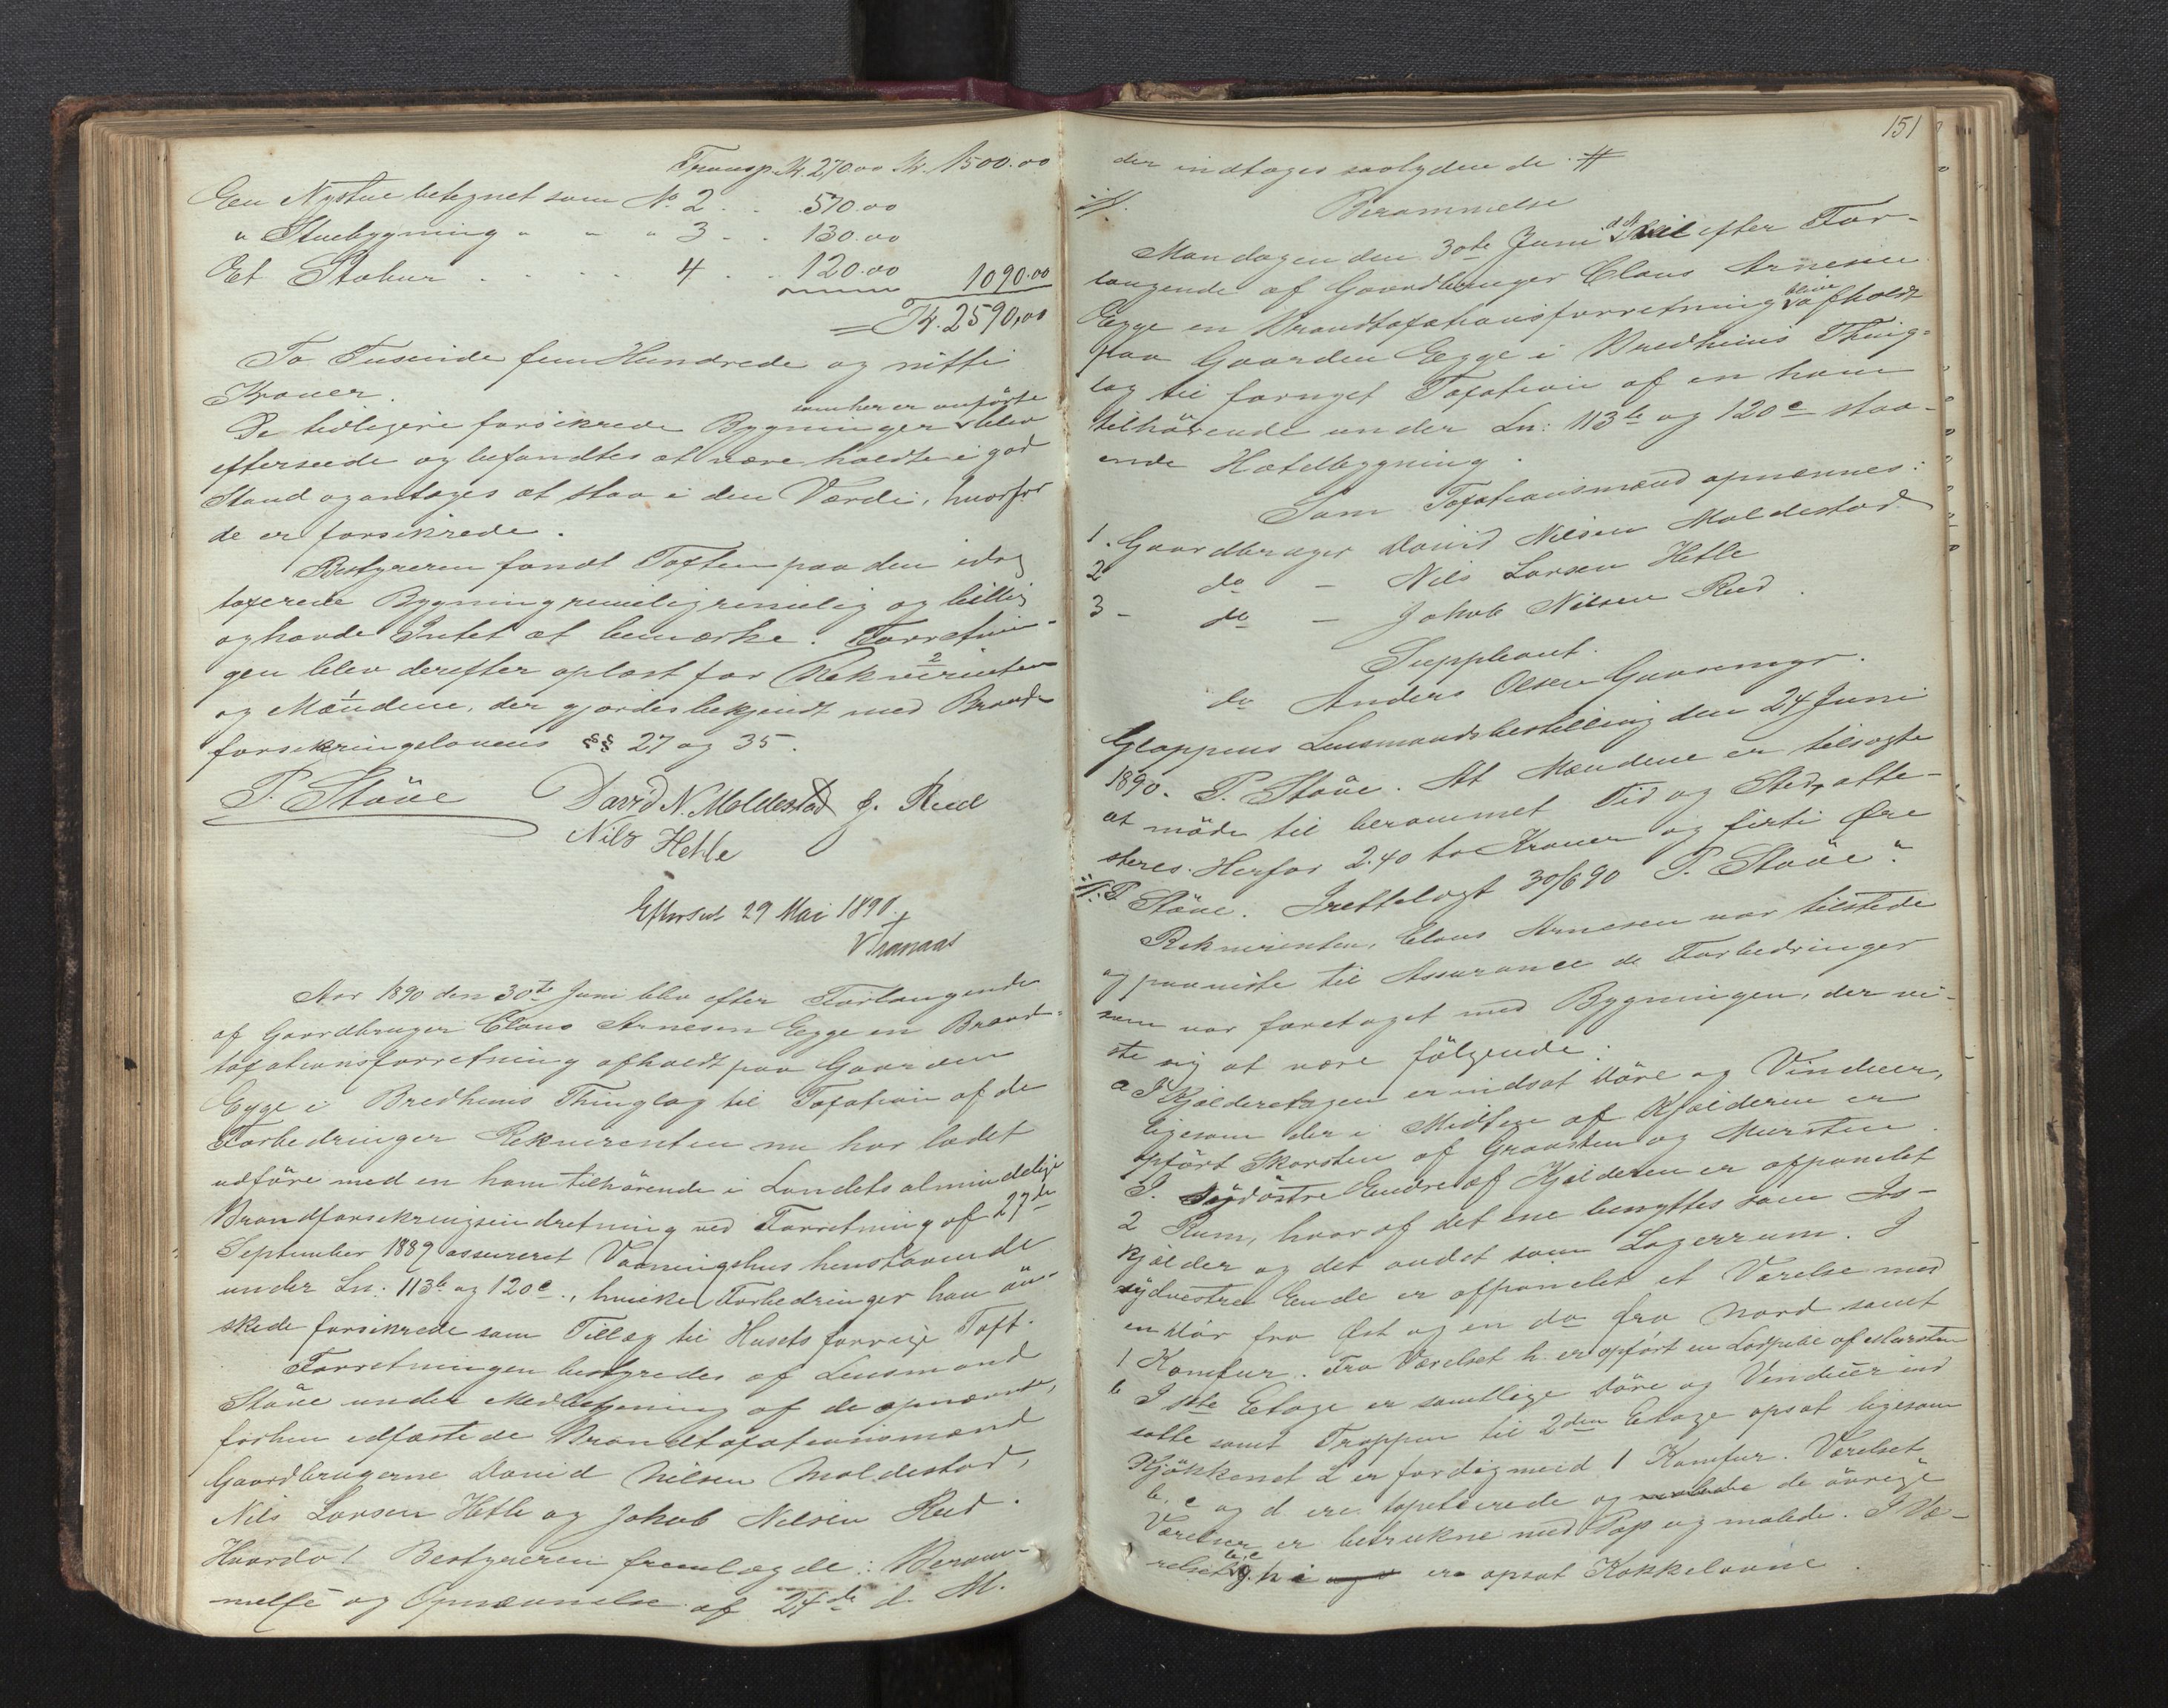 Transp. Kr. 270.00 Kr. 1500.00
En Nystue betegnet som No 2 . . 570.00
" Stuebygning " " " 3 - . 130.00
Et Stabur . . . . . 4 . . 120.00 1090.00
= Kr. 2590,00
To Tusinde fem Hundrede og nitti
Kroner.
som her er anförte
De tidligere forsikrede Bygninger blev
efterseede og befandtes at være holdte i god
Stand og antages at staa i den Værdi, hvorfor
de er forsikrede.
Bestyreren fandt Taxten paa den idag
taxerede Bygning rimelig rimelig og billig
og havde Intet at bemærke. Forretnin-
gen blev derefter oplæst for Rekvirenten
og Mændene, der gjordes bekjendt med Brand-
forsikringslovens §§ 27 og 35.
P. Stöve David N. Moldestad J. Reed
Nils Hetle
Efterseet 29 Mai 1890.
Aar 1890 den 30te Juni blev efter Forlangende
af Gaardbruger Claus Arnesen Egge en Brand-
taxationsforretning afholdt paa Gaarden
Egge i Bredheims Thinglag til Taxation af de
Forbedringer Rekvirenten nu har ladet
udföre med en ham tilhörende i Landets almindelige
Brandforsikringsindretning ved Forretning af 27de
September 1889 assureret Vaaningshus henstaaende
under Ln. 113b og 120c., hvilke Forbedringer han ön-
skede forsikrede som Tillæg til Husets forrige Taxt.
Forretningen bestyredes af Lensmand
Stöve under Medbetjening af de opnævnte,
forhen edfæstede Brandtaxationsmænd
Gaardbrugerne David Nilsen Moldestad,
Nils Larsen Hetle og Jakob Nilsen Reed.
Hvorda! Bestyreren fremlægde: Beram-
melse og Opnævnelse af 24de d. M.
151
der indtages saalydende #
#. Berammelse
Mandagen den 30te Juni vil efter For-
langende af Gaardbruger Claus Arnesen
blive
Egge en Brandtaxationsforretning afholdt
paa Gaarden Egge i Bredheims Thing-
lag til fornyet Taxation af en ham
tilhörende under Ln: 113b og 120c staa-
ende Hotelbygning.
Som Taxationsmænd opnævnes:
1. Gaardbruger David Nilsen Moldestad
2 do - Nils Larsen Hetle
3 - do - Jakob Nilsen Reed.
Suppleant.
do Anders Olsen
Gloppens Lensmandsbestilling den 24 Juni
1890. P. Stöve. At Mændene er tilsagte
at möde til berammet Tid og Sted, atte-
steres. Herfor 2.40 to Kroner og firti Øre
P. Stöve. Fretlelagt 30/6 90 P. Stöve".
Rekvirenten, Claus Arnesen var tilstede
og paaviste til Assurance de Forbedringer
som var foretaget med Bygningen, der vi-
ste sig at være fölgende:
a I Kjælderetagen er indsat Döre og Vinduer,
ligesom der i Midten af Kjælderen er
opfört Skorsten af Graasten og Mursten.
I. Sydöstre Ende af Kjælderen er afpanelet
2 Rum, hvoraf det ene benyttes som Is-
kjælder og det andet som Lagerrum. I
sydvestre Ende er afpanelet et Værelse med
en Dör fra Øst og en do fra Nord samt
1 Komfur. Fra Værelset h. er opfört en Lodpibe af Mursten
b I 1ste Etage er samtlige Döre og Vinduer ind
satte samt Trappen til 2den Etage opsat ligesom
Kjökkenet L er færdig med 1 Komfur. Værelset
b, c og d ere tapetserede og de övrige
Værelser er betrukne med Pap og malede. I Væ-
b, c
relset g, h i er opsat Kakkelovne.